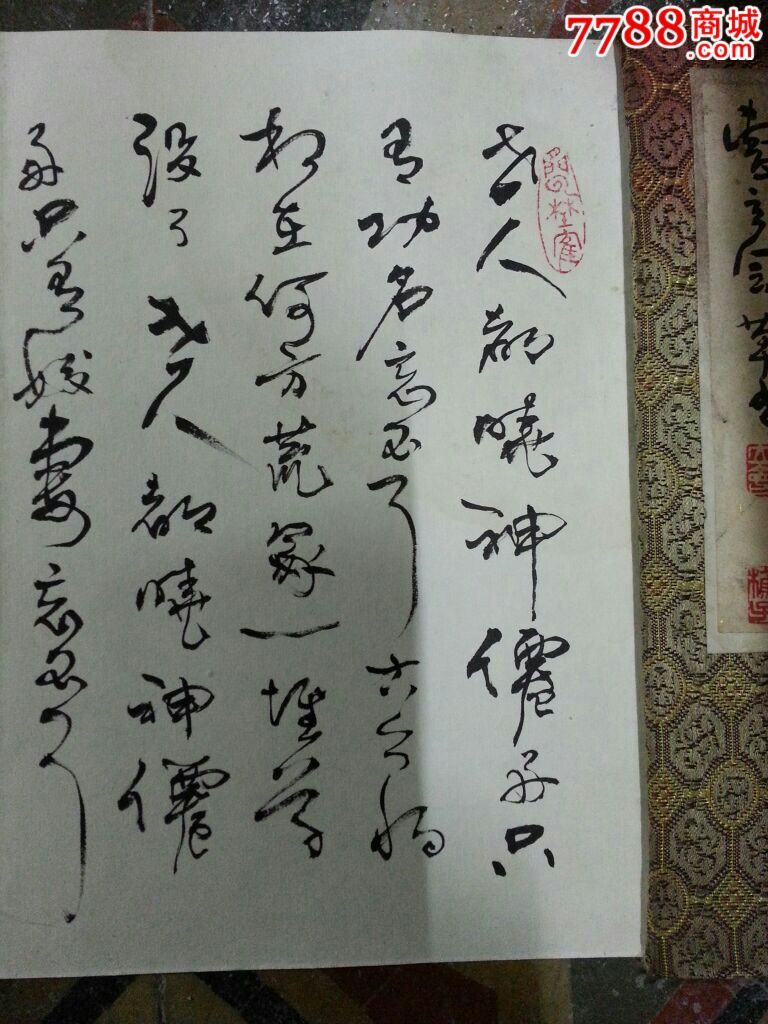 7788商城
.com
世人都曉神僊好只
有功名忘不了古今將
相在何方荒冢一堆草
没了世人都曉神僊
好只有姣妻忘不了